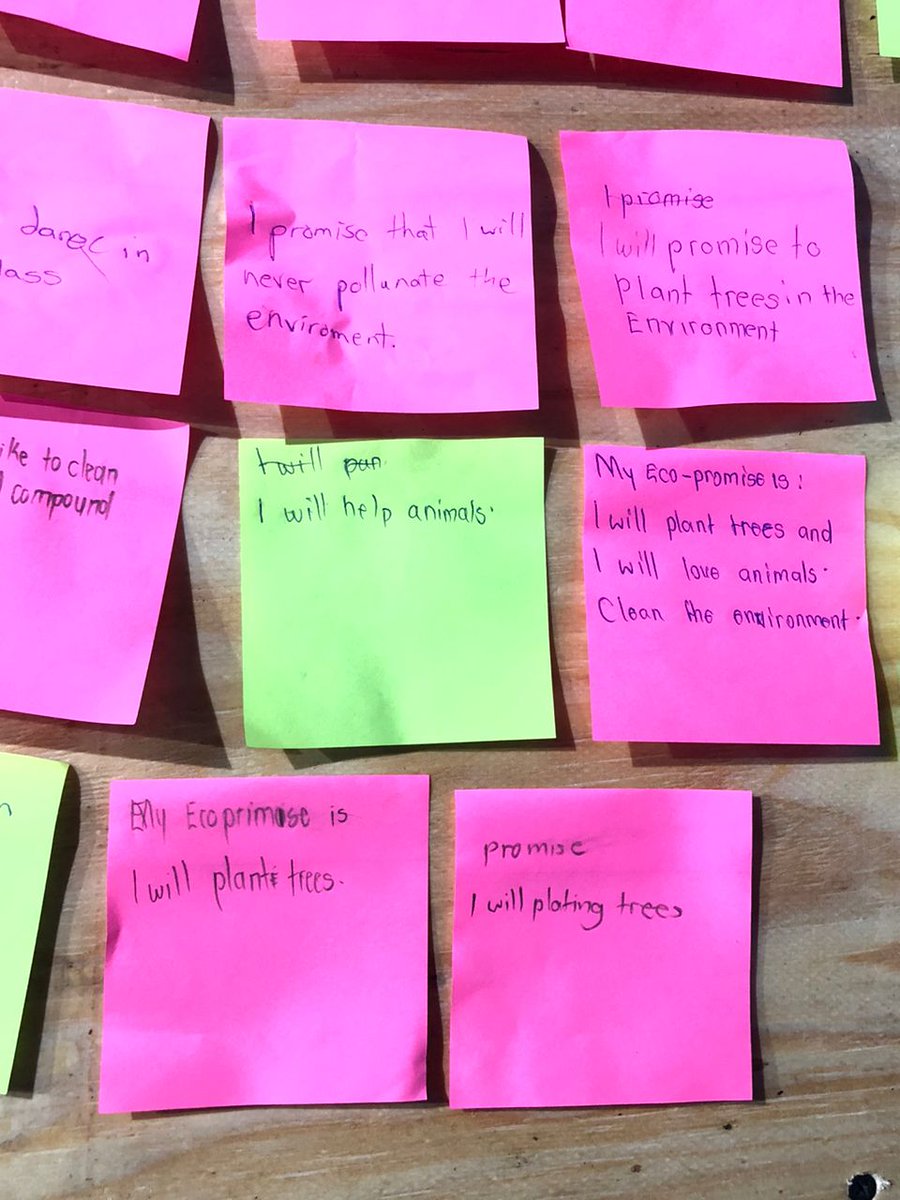 in
lass
I promise that I will
never pollunate the
enviroment.
I promise
I will promise to
plant trees in the
Environment
ike to clean
compound
I will pun
I will help animals.
My Eco-promise is:
I will plant trees and
I will love animals.
Clean the environment.
My Ecoprimose is
I will plant trees.
promise
I will plating trees